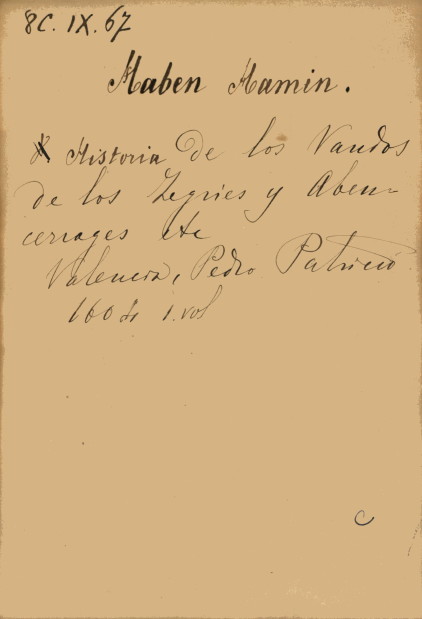 8C. IX. 67
Haben Hamin.
X Historia de los Vandos
de los Zegries y Aben-
cerrages etc
Valencia, Pedro Patricio
1604 1. vol
C